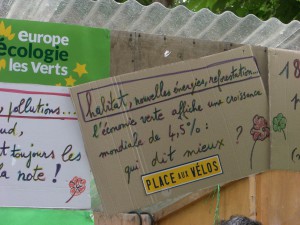 europe
écologie
les Verts
pollutions...
toujours les
la note !
habitat, nouvelles énergies, reforestation...
l'économie verte affiche une croissance
mondiale de 4,5% :
qui dit mieux ?
PLACE AUX VÉLOS
18